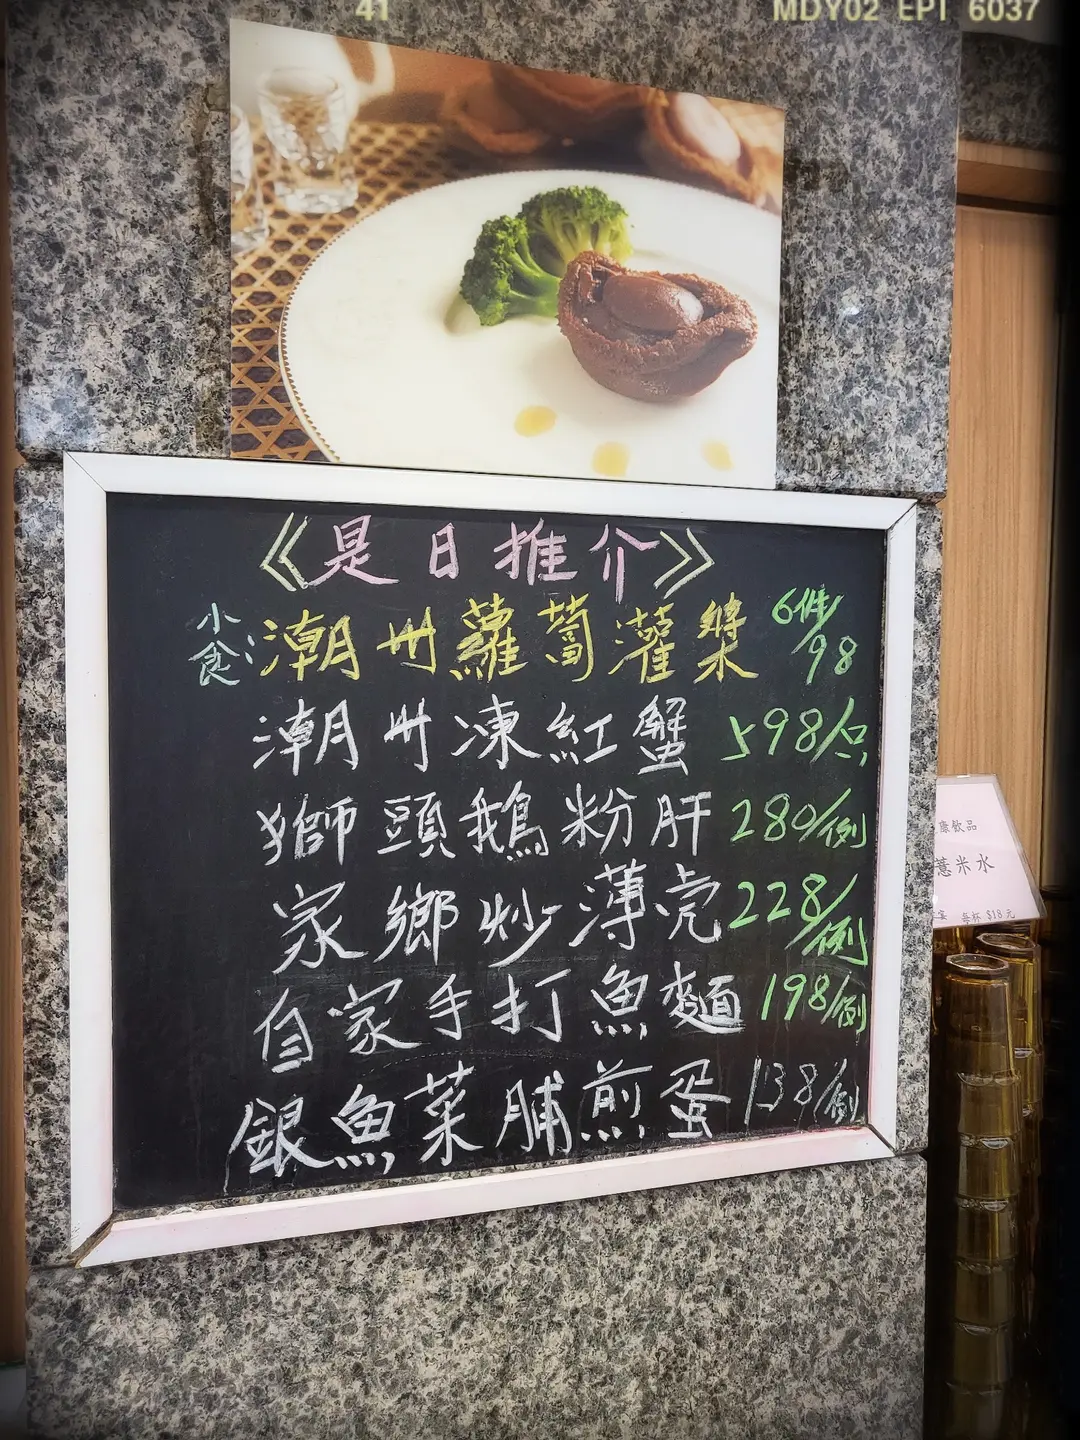 41
MDY02 EPI 6037
《是日推介》
小食：潮州蘿蔔灌漿 6件/98
潮州凍紅蟹 598/只
獅頭鵝粉肝 280/例
家鄉炒薄壳 228/例
自家手打魚麵 198/例
銀魚菜脯煎蛋 138/例
康飲品
薏米水
每杯 $18元